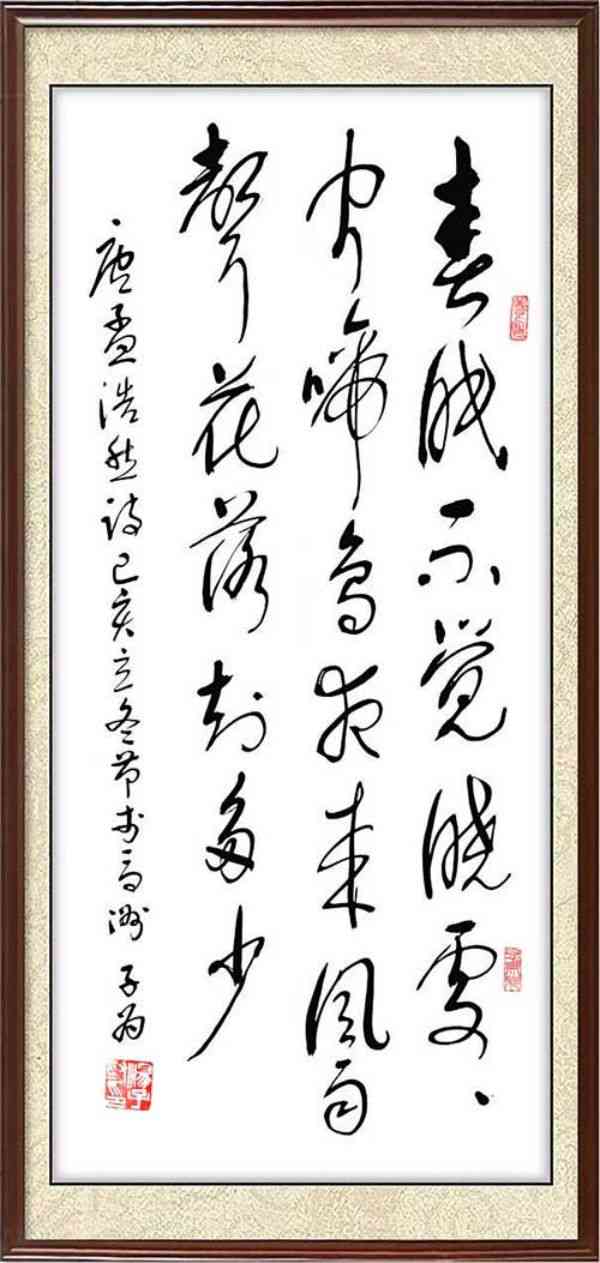 春眠不觉晓处、、
闻啼鸟夜来风雨
聲花落知多少
唐孟浩然诗己亥立冬节于 子为